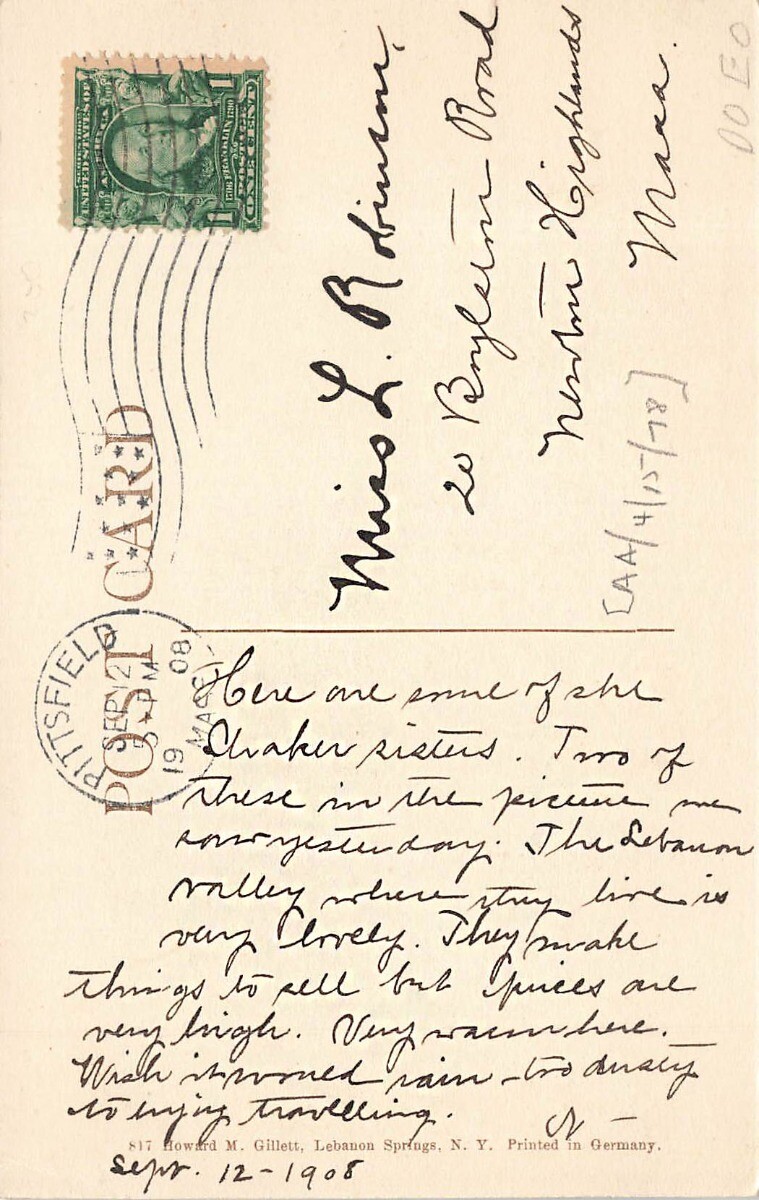 POST CARD
SERIES 1902
UNITED STATES OF AMERICA
1706 FRANKLIN 1790
POSTAGE
ONE CENT
1 1
PITTSFIELD
SEP 12
5 PM
1908
MASS.
Miss L. Robinson,
20 Boylston Road
Newton Highlands
Mass.
[AA/4/15/78]
Here are some of the
Shaker sisters. Two of
these in the picture we
saw yesterday. The Lebanon
valley where they live is
very lovely. They make
things to sell but prices are
very high. Very warm here.
Wish it would rain – too dusty
to enjoy travelling.
N –
817 Howard M. Gillett, Lebanon Springs, N. Y. Printed in Germany.
Sept. 12 – 1908